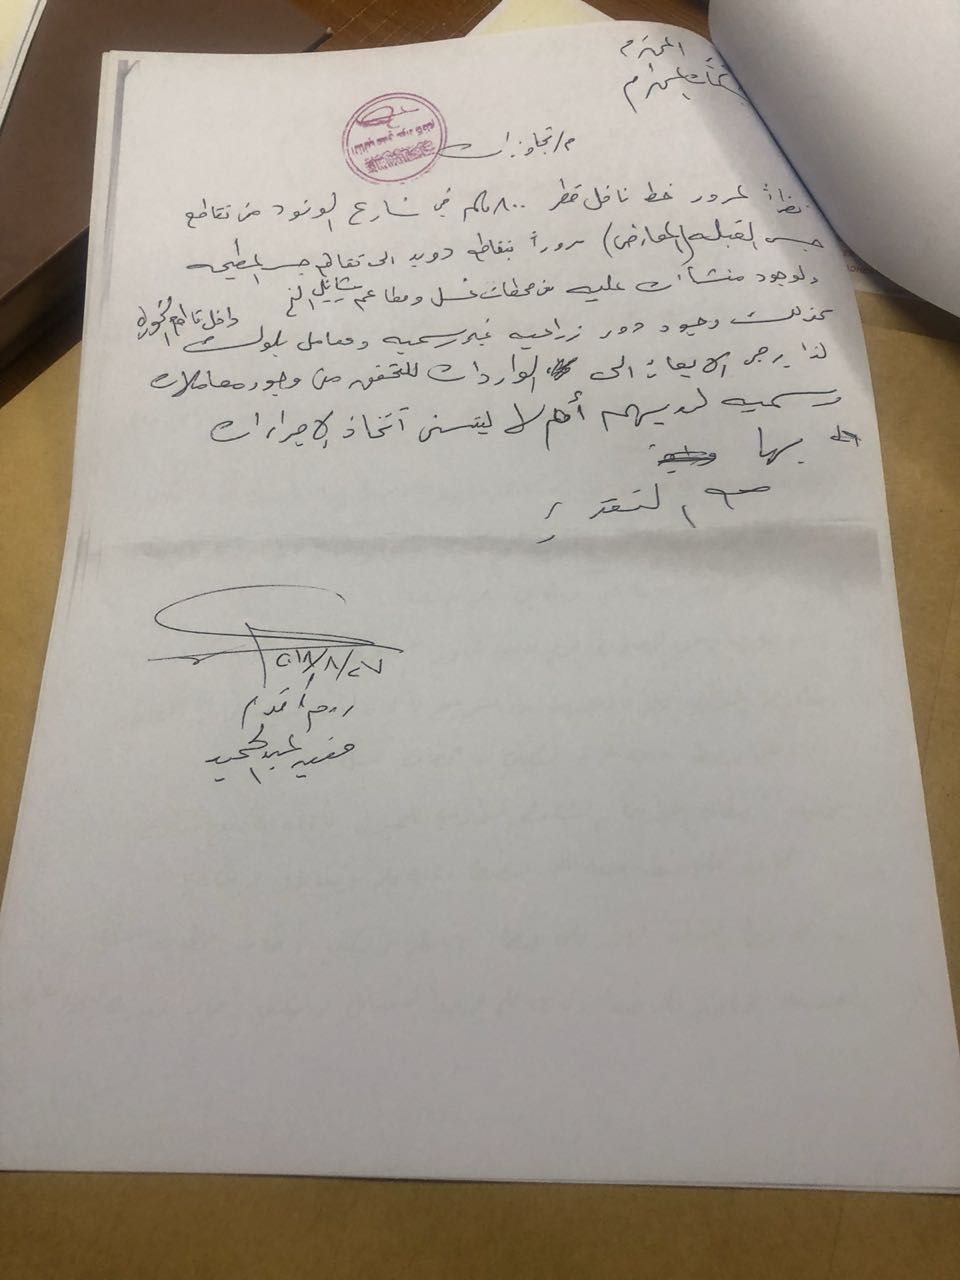 المحترم
م/تجاوزات
نظراً لمرور خط ناقل قطر ٨٠٠ ملم في شارع الوفود من تقاطع
جسر القبله (المعارض) مروراً بتقاطع دويد الى تقاطع جسر
ولوجود منشآت عليه من محطات غسل ومطاعم الخ داخل
كذلك وجود دور زراعيه غير رسميه ومعامل بلوك
لذا يرجى الايعاز الى الواردات للتحقق من وجود معاملات
رسميه لديهم أم لا ليتسنى أتخاذ الاجراءات
بها
مع التقدير
٢٠١٨/٨/٢٧
ر.م. أقدم
عبد الحميد